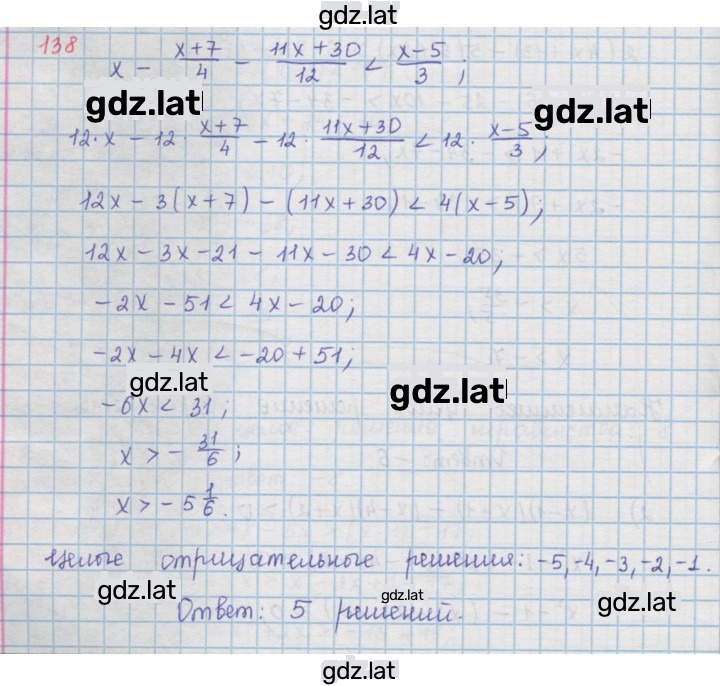 gdz.lat
138
x − (x+7)/4 − (11x+30)/12 < (x−5)/3 ;
gdz.lat gdz.lat
12·x − 12·(x+7)/4 − 12·(11x+30)/12 < 12·(x−5)/3 ;
12x − 3(x+7) − (11x+30) < 4(x−5);
12x − 3x − 21 − 11x − 30 < 4x − 20;
−2x − 51 < 4x − 20;
−2x − 4x < −20 + 51;
gdz.lat gdz.lat
−6x < 31;
x > − 31/6 ;
x > − 5 1/6 .
Целые отрицательные решения: −5, −4, −3, −2, −1.
gdz.lat gdz.lat gdz.lat
Ответ: 5 решений.
gdz.lat